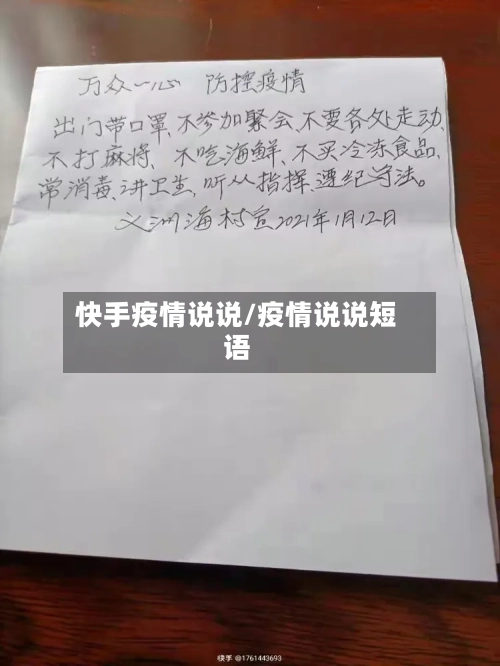 万众一心 防控疫情
出门带口罩、不参加聚会、不要各处走动、
不打麻将、不吃海鲜、不买冷冻食品、
常消毒、讲卫生、听从指挥、遵纪守法。
义洲海村宣2021年1月12日
快手疫情说说/疫情说说短
语
快手 @1761443693